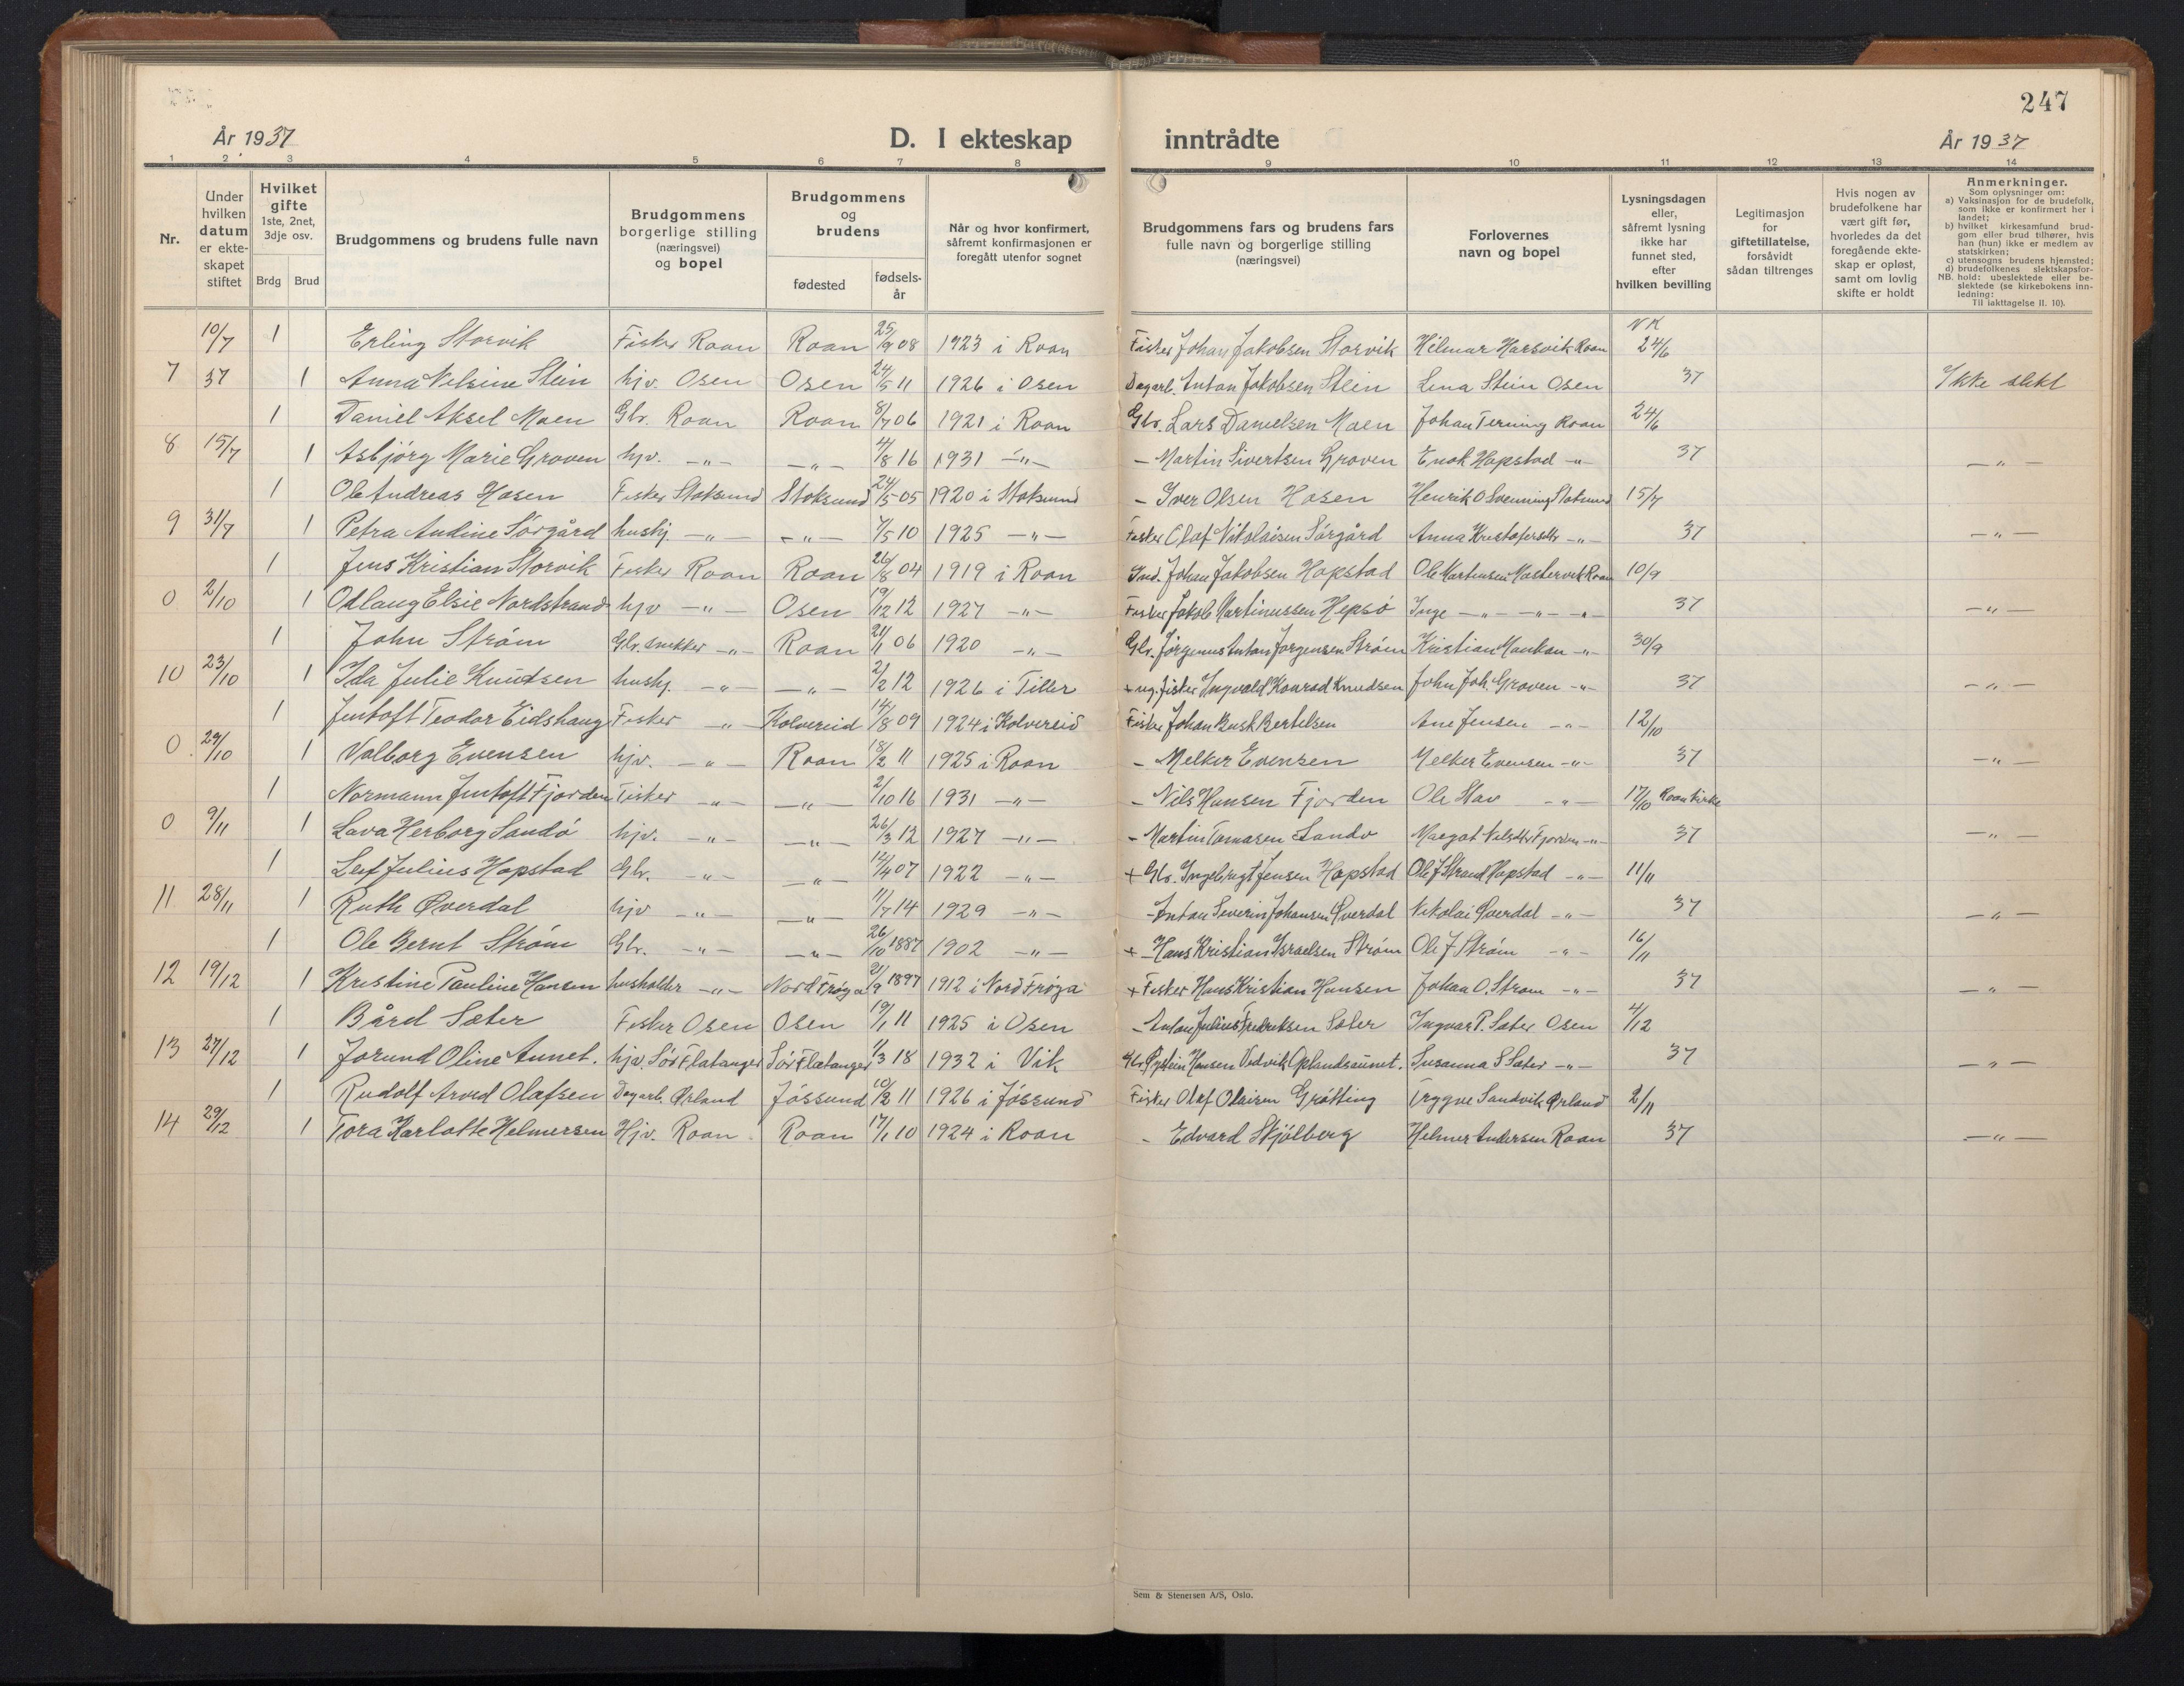 247
År 1937 D. I ekteskap inntrådte År 1937
1 2 3 4 5 6 7 8 9 10 11 12 13 14
Nr.
Under hvilken datum er ekteskapet stiftet
Hvilket gifte 1ste, 2net, 3dje osv.
Brdg Brud
Brudgommens og brudens fulle navn
Brudgommens borgerlige stilling (næringsvei) og bopel
Brudgommens og brudens
fødested fødselsår
Når og hvor konfirmert, såfremt konfirmasjonen er foregått utenfor sognet
Brudgommens fars og brudens fars fulle navn og borgerlige stilling (næringsvei)
Forlovernes navn og bopel
Lysningsdagen eller, såfremt lysning ikke har funnet sted, efter hvilken bevilling
Legitimasjon for giftetillatelse, forsåvidt sådan tiltrenges
Hvis nogen av brudefolkene har vært gift før, hvorledes da det foregående ekteskap er opløst, samt om lovlig skifte er holdt
Anmerkninger.
Som oplysninger om:
a) Vaksinasjon for de brudefolk, som ikke er konfirmert her i landet;
b) hvilket kirkesamfund brudgom eller brud tilhører, hvis han (hun) ikke er medlem av statskirken;
c) utensogns brudens hjemsted;
d) brudefolkenes slektskapsforhold: ubeslektede eller beslektede (se kirkebokens innledning:
NB. Til iakttagelse II. 10).
10/7 1 Erling Storvik Fisker Roan Roan 25/9 08 1923 i Roan Fisker Johan Jakobsen Storvik Hilmar Harsvik Roan NK 24/6
7 37 1 Anna Nelsine Stein hjv. Osen Osen 24/5 11 1926 i Osen Dagarb. Anton Jakobsen Stein Lina Stein Osen 37 Ikke slekt
1 Daniel Aksel Moen Gbr. Roan Roan 8/7 06 1921 i Roan Gbr. Lars Danielsen Moen Johan Terning Roan 24/6
8 15/7 1 Asbjørg Marie Groven hjv. -"- -"- 4/8 16 1931 -"- - Martin Sivertsen Groven Enok Hopstad -"- 37 -"-
1 Ole Andreas Hosen Fisker Stoksund Stoksund 24/5 05 1920 i Stoksund - Iver Olsen Hosen Henrik O Svenning Stoksund 15/7
9 31/7 1 Petra Andine Sørgård hushj. -"- -"- 7/5 10 1925 -"- Fisker Olaf Nikolaisen Sørgård Anna Kristofersdtr -"- 37 -"-
1 Jens Kristian Storvik Fisker Roan Roan 26/8 04 1919 i Roan Ind. Johan Jakobsen Hopstad Ole Martinsen Mastervik Roan 10/9
0 2/10 1 Odlaug Elsie Nordstrand hjv -"- Osen 19/12 12 1927 -"- Fisker Jakob Martinussen Hepsø Inge -"- -"- -"- 37 -"-
1 John Strøm Gbr. snekker -"- Roan 21/1 06 1920 -"- Gbr. Jørginus Anton Jørgensen Strøm Kristian Mankan -"- 30/9
10 23/10 1 Ida Julie Knudsen hushj. -"- -"- 2/2 12 1926 i Tiller + ug. fisker Ingvald Konrad Knudsen John Joh. Groven -"- 37 -"-
1 Jentoft Teodor Eidshaug Fisker -"- Kolvereid 14/8 09 1924 i Kolvereid Fisker Johan Busk Bertelsen Ane Jensen -"- 12/10
0 29/10 1 Valborg Evensen hjv. -"- Roan 18/2 11 1925 i Roan - Melker Evensen Melker Evensen -"- 37 -"-
1 Normann Jentoft Fjorden Fisker -"- -"- 2/10 16 1931 -"- - Nils Hansen Fjorden Ole Stav -"- 17/10 Roan kirke
0 9/11 1 Lava Herborg Sandø hjv. -"- -"- 26/3 12 1927 -"- - Martin Tomasen Sandø Margot Nilsdtr Fjorden -"- 37 -"-
1 Leif Julius Hopstad Gbr. -"- -"- 12/4 07 1922 -"- + Gbr. Ingebrigt Jensen Hopstad Ole J Strand Hopstad -"- 11/11
11 28/11 1 Ruth Øverdal hjv -"- -"- 11/7 14 1929 -"- - Anton Severin Johansen Øverdal Nikolai Øverdal -"- 37 -"-
1 Ole Bernt Strøm Gbr. -"- -"- 26/10 1887 1902 -"- + - Hans Kristian Israelsen Strøm Ole J Strøm -"- 16/11
12 19/12 1 Kristine Pauline Hansen husholder -"- Nord Frøya 21/9 1897 1912 i Nord Frøya + Fisker Hans Kristian Hansen Johan O. Strøm -"- 37 -"-
1 Bård Sæter Fisker Osen Osen 19/1 11 1925 i Osen - Anton Julius Fredriksen Sæter Ingvar P. Sæter Osen 4/12
13 27/12 1 Jorund Oline Aunet. hjv. Sør Flatanger Sør Flatanger 1/3 18 1932 i Vik Gbr. Øystein Hansen Vedvik Oplandsaunet. Susanna S Sæter -"- 37 -"-
1 Rudolf Arved Olafsen Dagarb. Ørland Jøssund 10/2 11 1926 i Jøssund Fisker Olaf Olaisen Grøtting Trygve Sandvik Ørland 2/11
14 29/12 1 Tora Karlotte Helmersen Hjv. Roan Roan 17/1 10 1924 i Roan - Edvard Skjølberg Helmer Andersen Roan 37 -"-
Sem & Stenersen A/S, Oslo.